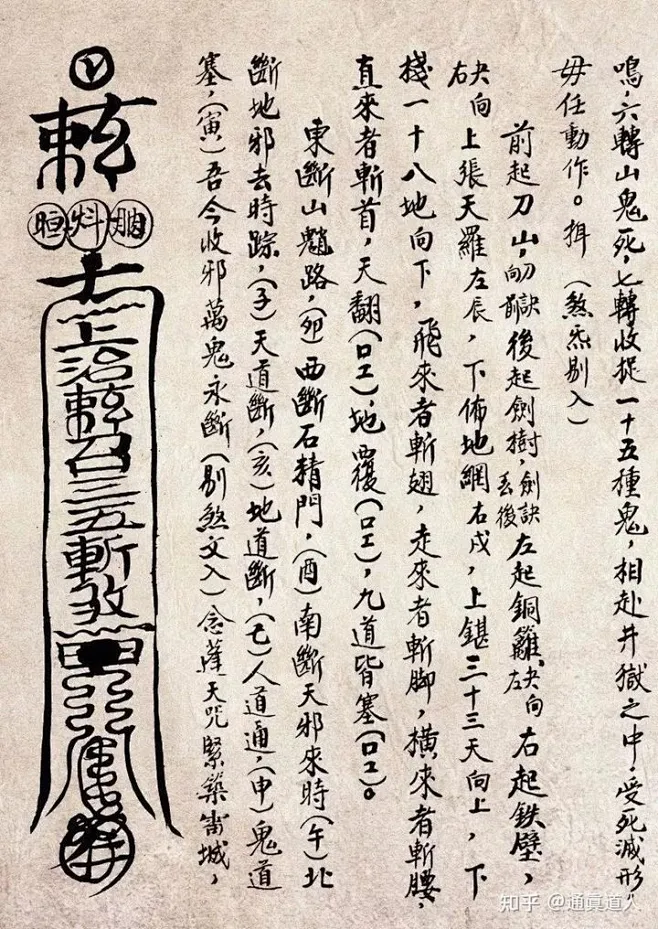 鳴，六轉山鬼死，七轉收捉一十五種鬼，相赴井獄之中，受死滅形，
毋任動作。揖（煞炁剔入）
前起刀山，向前刀訣後起劍樹，劍訣丢後左起銅籬，決向左右起鉄壁，
決向右上張天羅左辰，下佈地網右戌，上鎮三十三天向上，下
棧一十八地向下，飛來者斬翅，走來者斬脚，横來者斬腰，
直來者斬首，天翻（口工），地覆（口工），九道皆塞（口工）。
東斷山魈路，（卯）西斷石精門，（酉）南斷天邪來時（午）北
斷地邪去時踪，（子）天道斷，（亥）地道斷，（巳）人道通，（申）鬼道
塞，（寅）吾今收邪萬鬼永斷（剔煞文入）念薩天咒緊築雷城，
上治敕召三五斬煞
知乎 @通眞道人